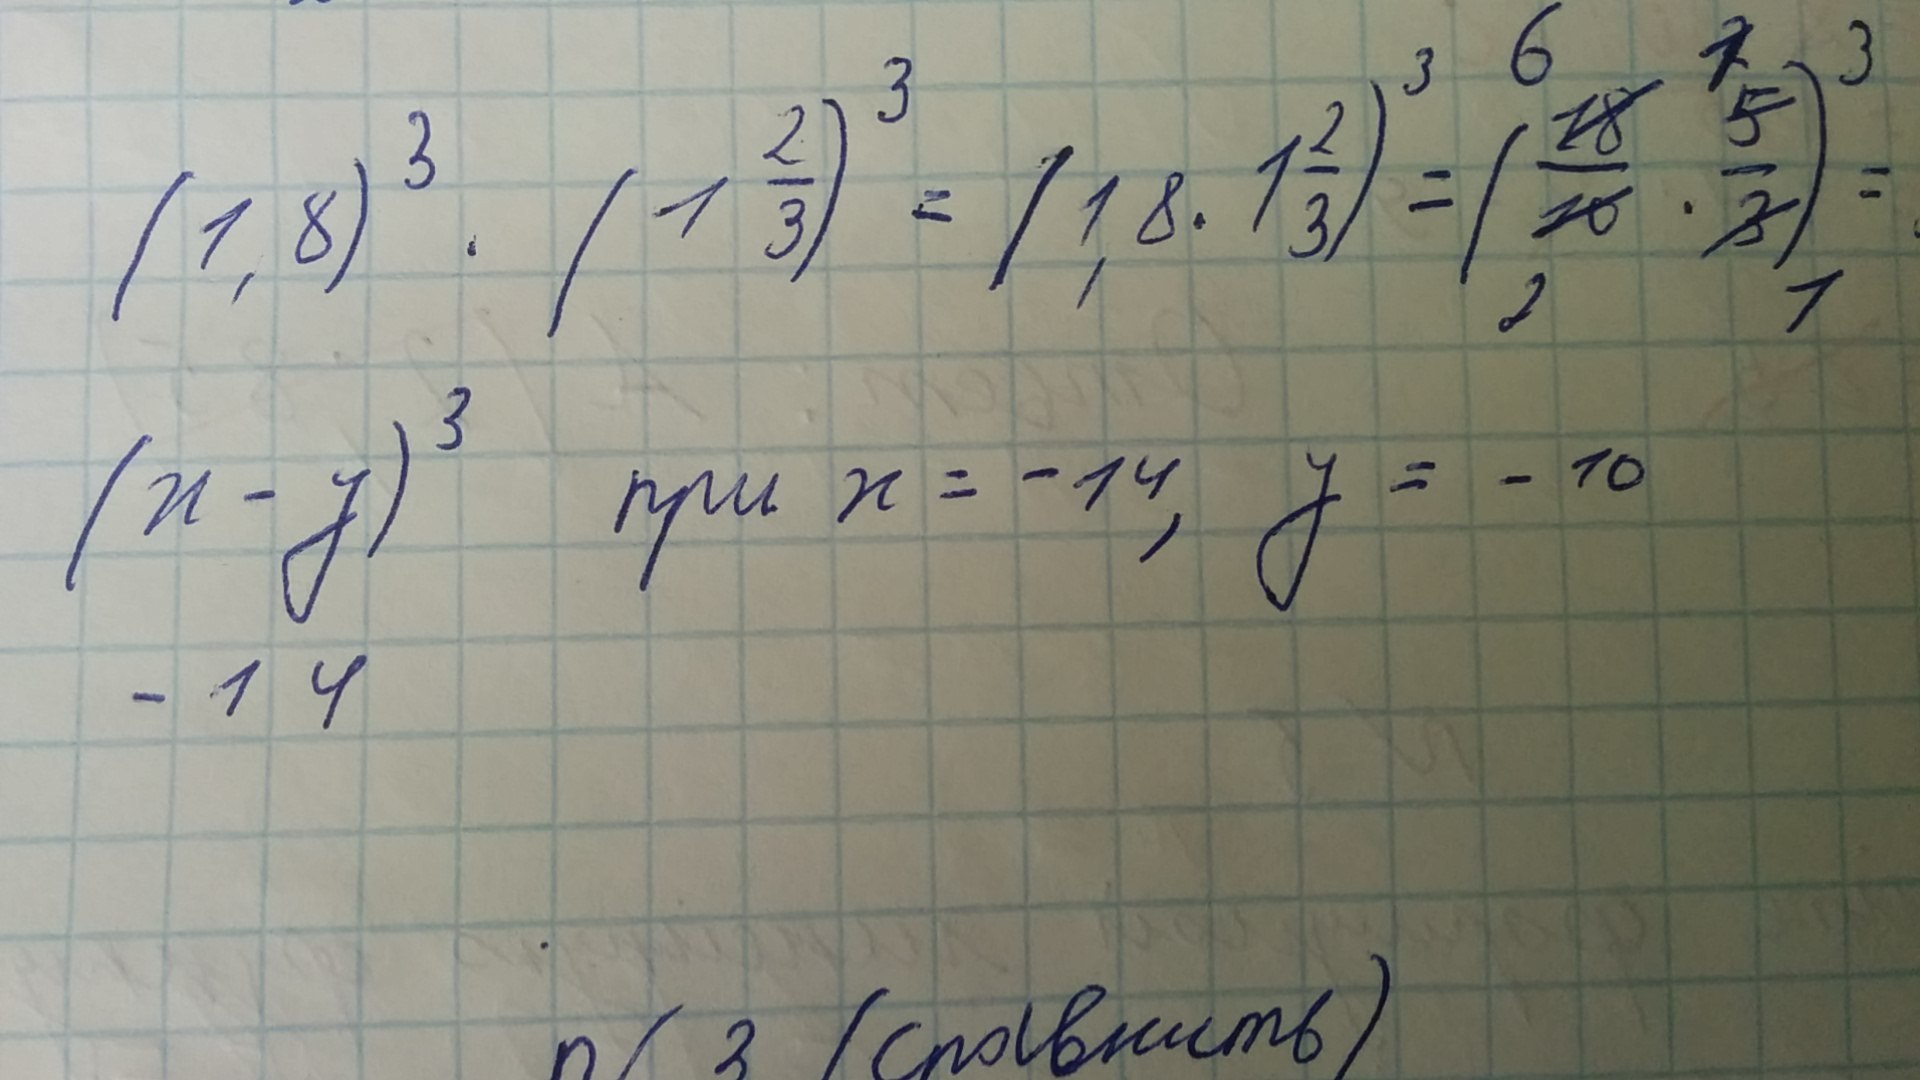 (1,8)³ · (1 2/3)³ = (1,8 · 1 2/3)³ = (18/10 · 5/3)³ =
6 1
2 1
(x - y)³ при x = -14, y = -10
-14
N 3 (сравнить)